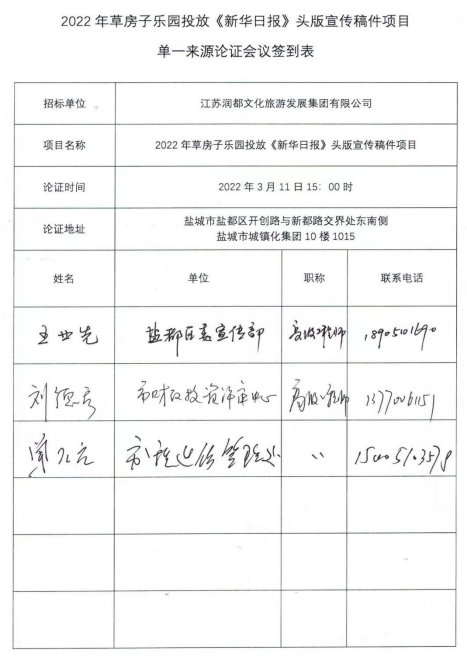 2022 年草房子乐园投放《新华日报》头版宣传稿件项目
单一来源论证会议签到表
招标单位 江苏润都文化旅游发展集团有限公司
项目名称 2022 年草房子乐园投放《新华日报》头版宣传稿件项目
论证时间 2022 年 3 月 11 日 15：00 时
论证地址 盐城市盐都区开创路与新都路交界处东南侧
盐城市城镇化集团 10 楼 1015
姓名 单位 职称 联系电话
盐都区委宣传部 高级工程师
刘 市财政投资评审中心 高级工程师 13770061151
市 管理处 〃